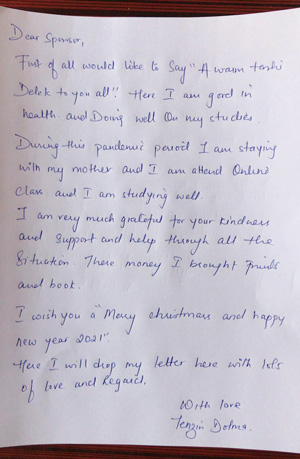 Dear Sponsor,
First of all would like to Say "A warm tashi
Delek to you all". Here I am good in
health and Doing well On my studies.
During this pandemic period I am staying
with my mother and I am attend Online
Class and I am studying well.
I am very much grateful for your kindness
and support and help through all the
Situation. There money I brought fruids
and book.
I wish you a "Merry christmas and happy
new year 2021".
Here I will drop my letter here with lots
of love and Regard.
With love
Tenzin Dolma.